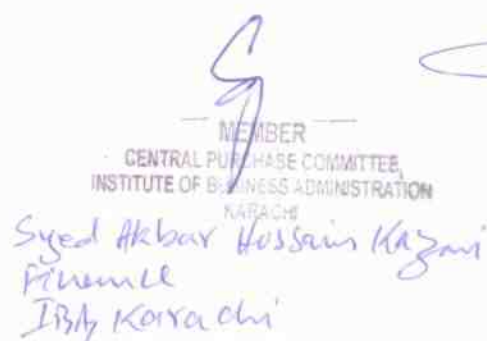 MEMBER
CENTRAL PURCHASE COMMITTEE,
INSTITUTE OF BUSINESS ADMINISTRATION
KARACHI
Syed Akbar Hussain Kazmi
Finance
IBA Karachi